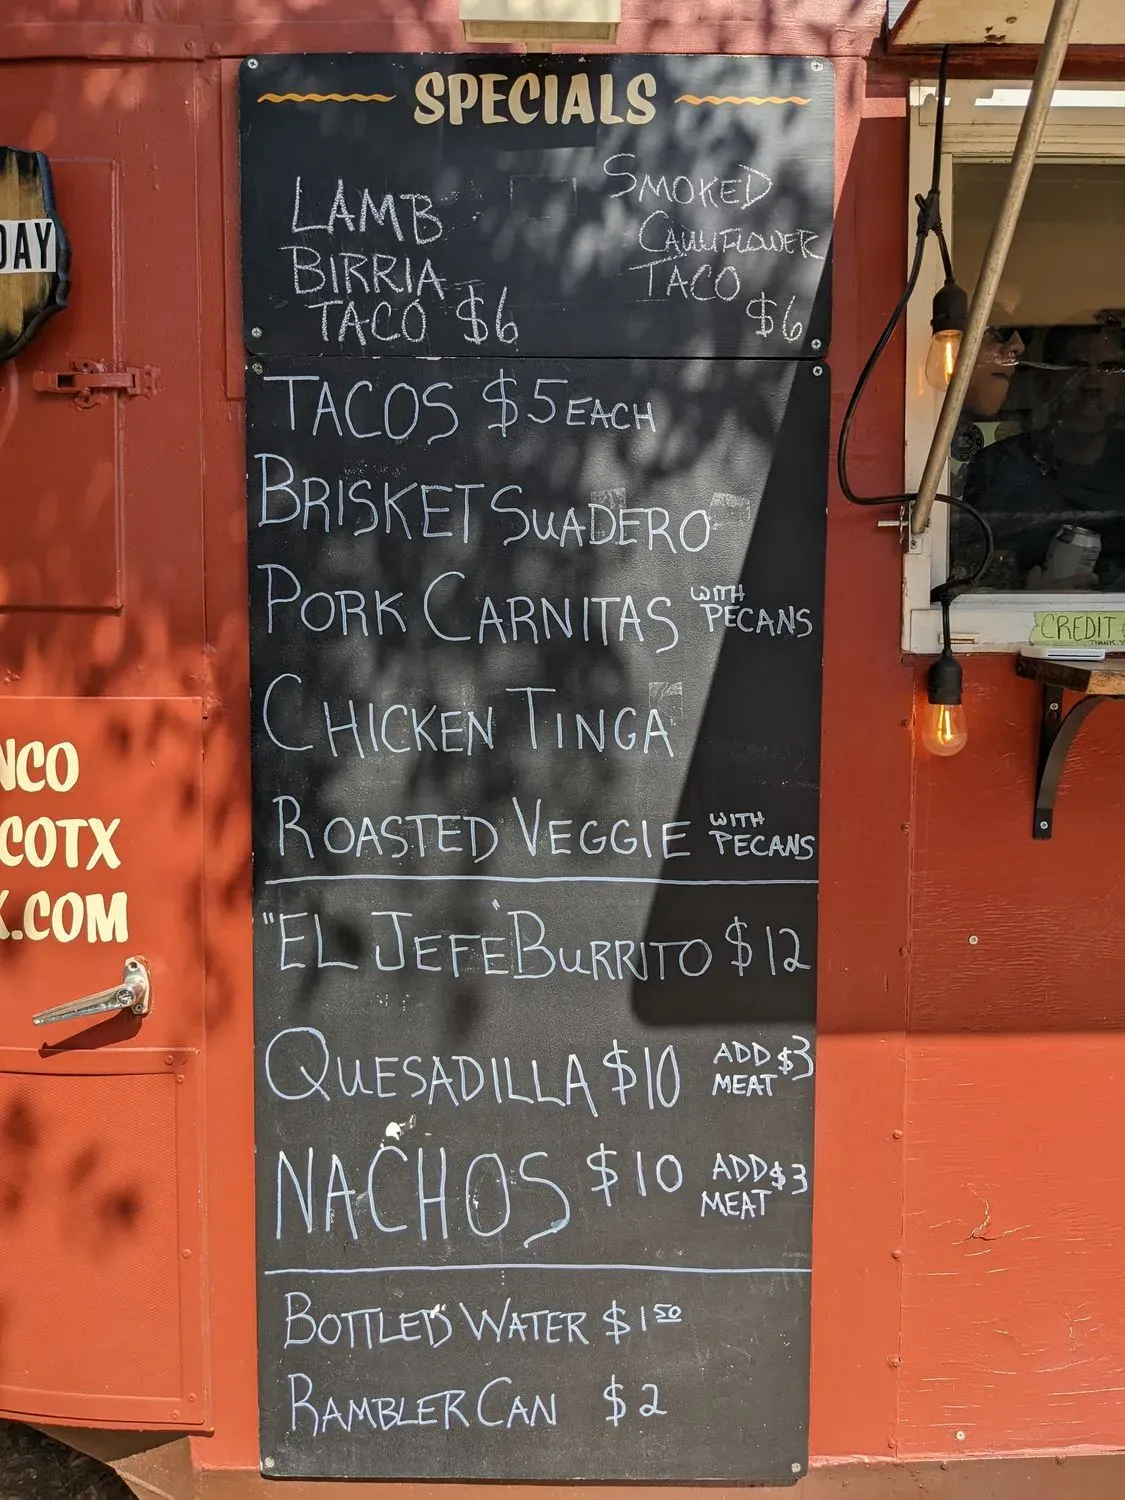 SPECIALS
LAMB
BIRRIA
TACO $6
SMOKED
CAULIFLOWER
TACO
$6
TACOS $5 EACH
BRISKET SUADERO
PORK CARNITAS WITH PECANS
CHICKEN TINGA
ROASTED VEGGIE WITH PECANS
"EL JEFE" BURRITO $12
QUESADILLA $10 ADD MEAT $3
NACHOS $10 ADD MEAT $3
BOTTLED WATER $1 50
RAMBLER CAN $2
DAY
NCO
COTX
.COM
CREDIT